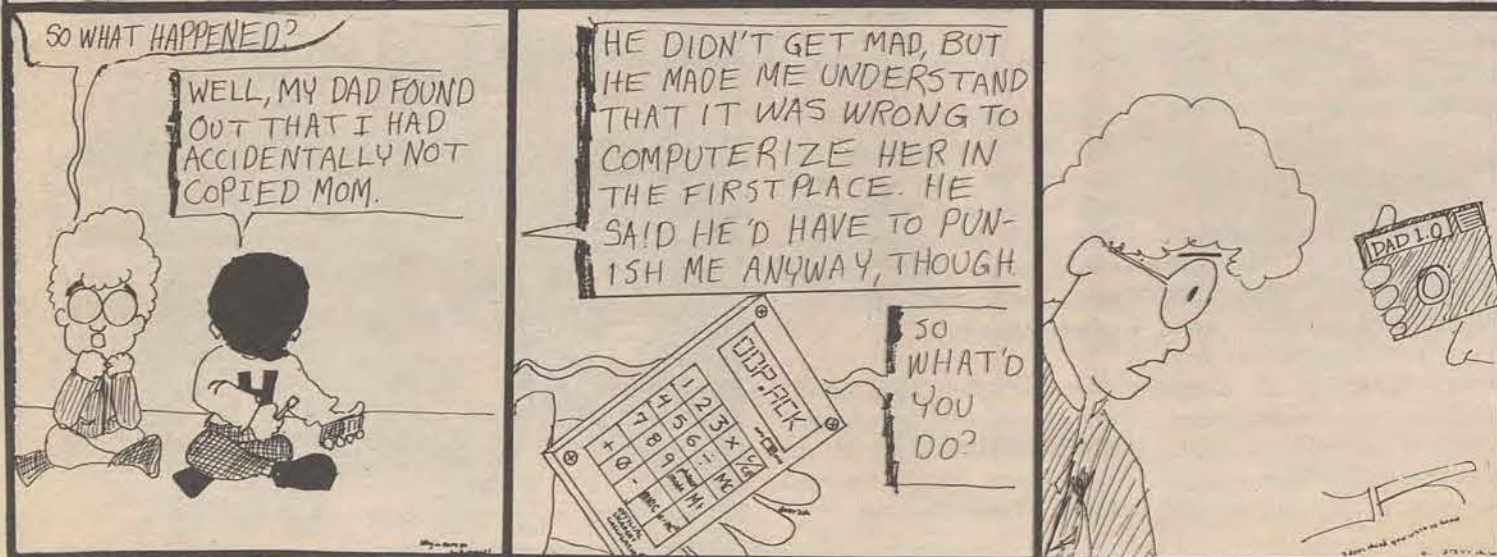 SO WHAT HAPPENED?
WELL, MY DAD FOUND
OUT THAT I HAD
ACCIDENTALLY NOT
COPIED MOM.
HE DIDN'T GET MAD, BUT
HE MADE ME UNDERSTAND
THAT IT WAS WRONG TO
COMPUTERIZE HER IN
THE FIRST PLACE. HE
SAID HE'D HAVE TO PUN-
ISH ME ANYWAY, THOUGH.
OOP.ACK
1 2 3 × C/CE
4 5 6 ÷ MC
7 8 9 M+
+ 0 -
SO
WHAT'D
YOU
DO?
DAD 1.0